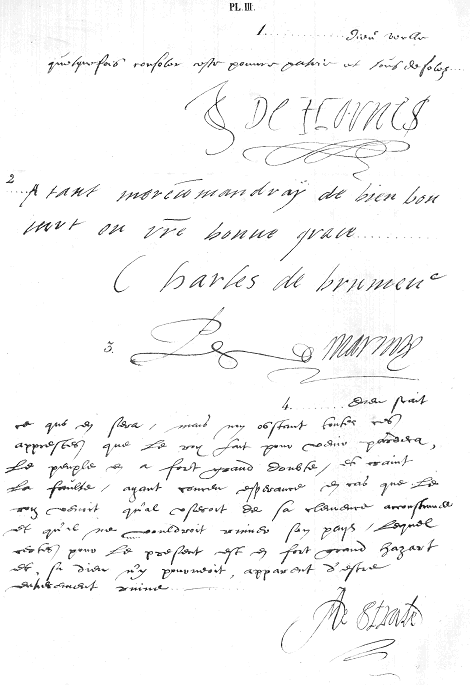 PL. III.
1 . . . . . . . . Dieu veulle
quelquefois consoler ceste pouvre patrie et tous desolez . . .
DE HORNES
2
. . . . A tant me recōmandray de bien bon
cuert en vr̄e bonne grace . . . . . . . . . .
Charles de brimeu
3.
marnix
4. . . . . . . . . Dieu scait
ce que en sera, mais non obstant toutes ces
apprestes que le roy fait pour venir pardeca,
le peuple en a fort grand doubte, et craint
la faulte, ayant encores esperance, en cas que le
roy venist qu'al useroit de sa clemence
et qu'il ne vouldroit ruiner son pays, lequel
certes pour le present est en fort grand hazart
et, sa dieu n'y pourvoit, apparent d'estre
entierement ruine . . . .